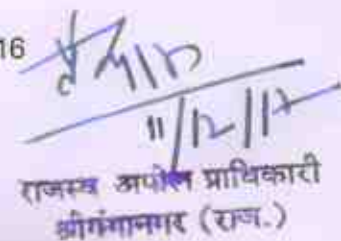 16
11/12/17
राजस्व अपील प्राधिकारी
श्रीगंगानगर (राज.)